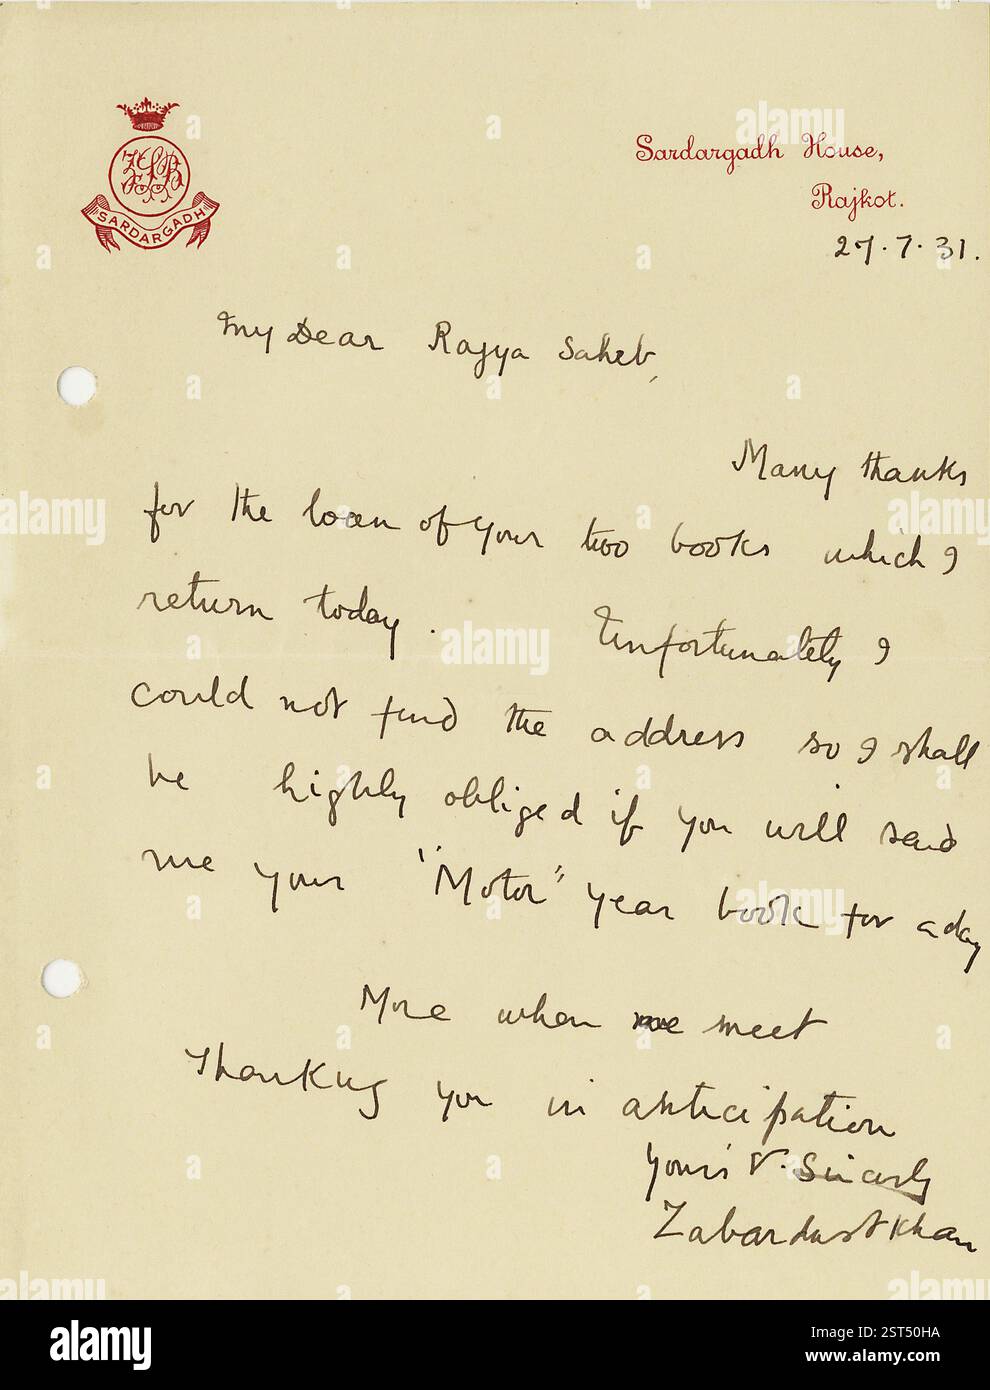 SARDARGADH
Sardargadh House,
Rajkot.
27.7.31.
My Dear Rajya Saheb,
Many thanks
for the loan of your two books which I
return today. Unfortunately I
could not find the address so I shall
be highly obliged if you will send
me your "Motor" year book for a day
More when we meet
Thanking you in anticipation
Yours V. Sincerly
Zabardust Khan
alamy
Image ID: 2ST50HA
www.alamy.com